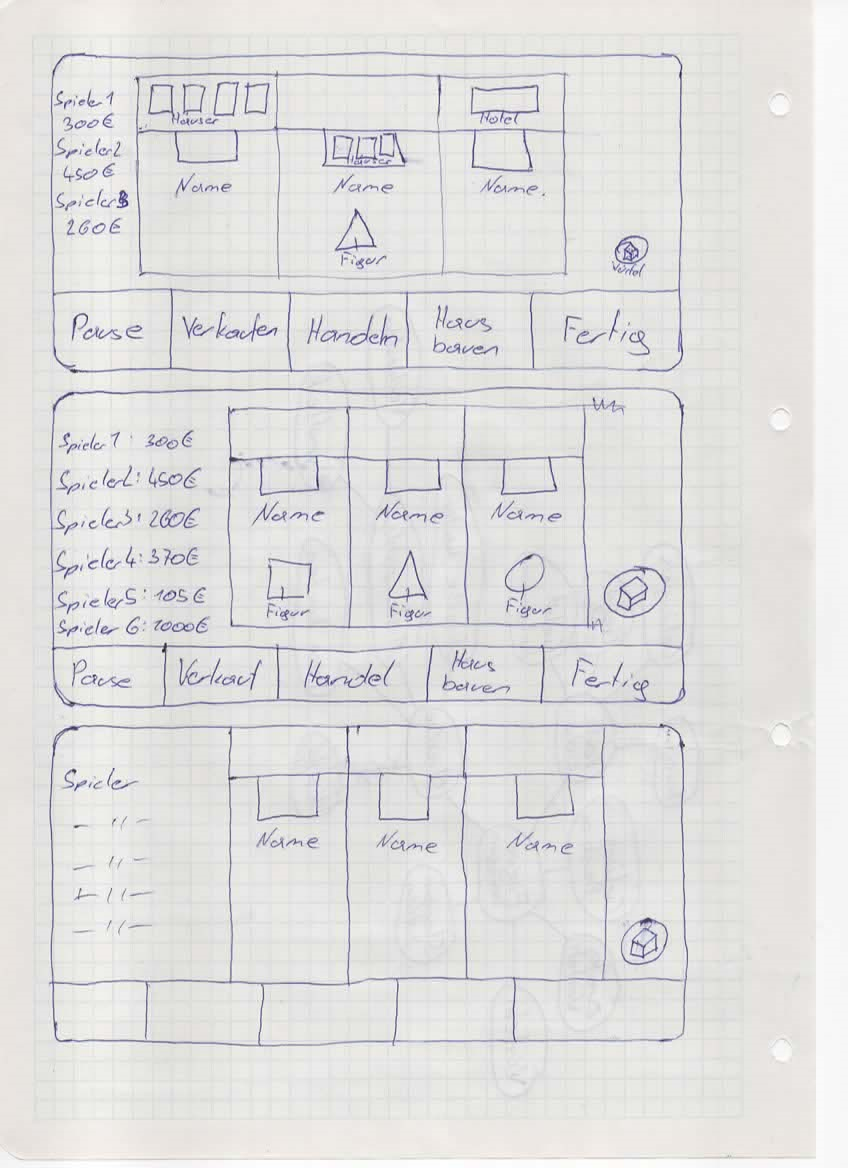 Spieler 1
300€
Spieler 2
450€
Spieler 3
260€
Häuser
Hotel
Häuser
Name
Name
Name.
Figur
Würfel
Pause
Verkaufen
Handeln
Haus
bauen
Fertig
Spieler 1: 300€
Spieler 2: 450€
Spieler 3: 260€
Spieler 4: 370€
Spieler 5: 105€
Spieler 6: 1000€
Name
Name
Name
Figur
Figur
Figur
Pause
Verkauf
Handel
Haus
bauen
Fertig
Spieler
— 〃 —
— 〃 —
— 〃 —
— 〃 —
Name
Name
Name